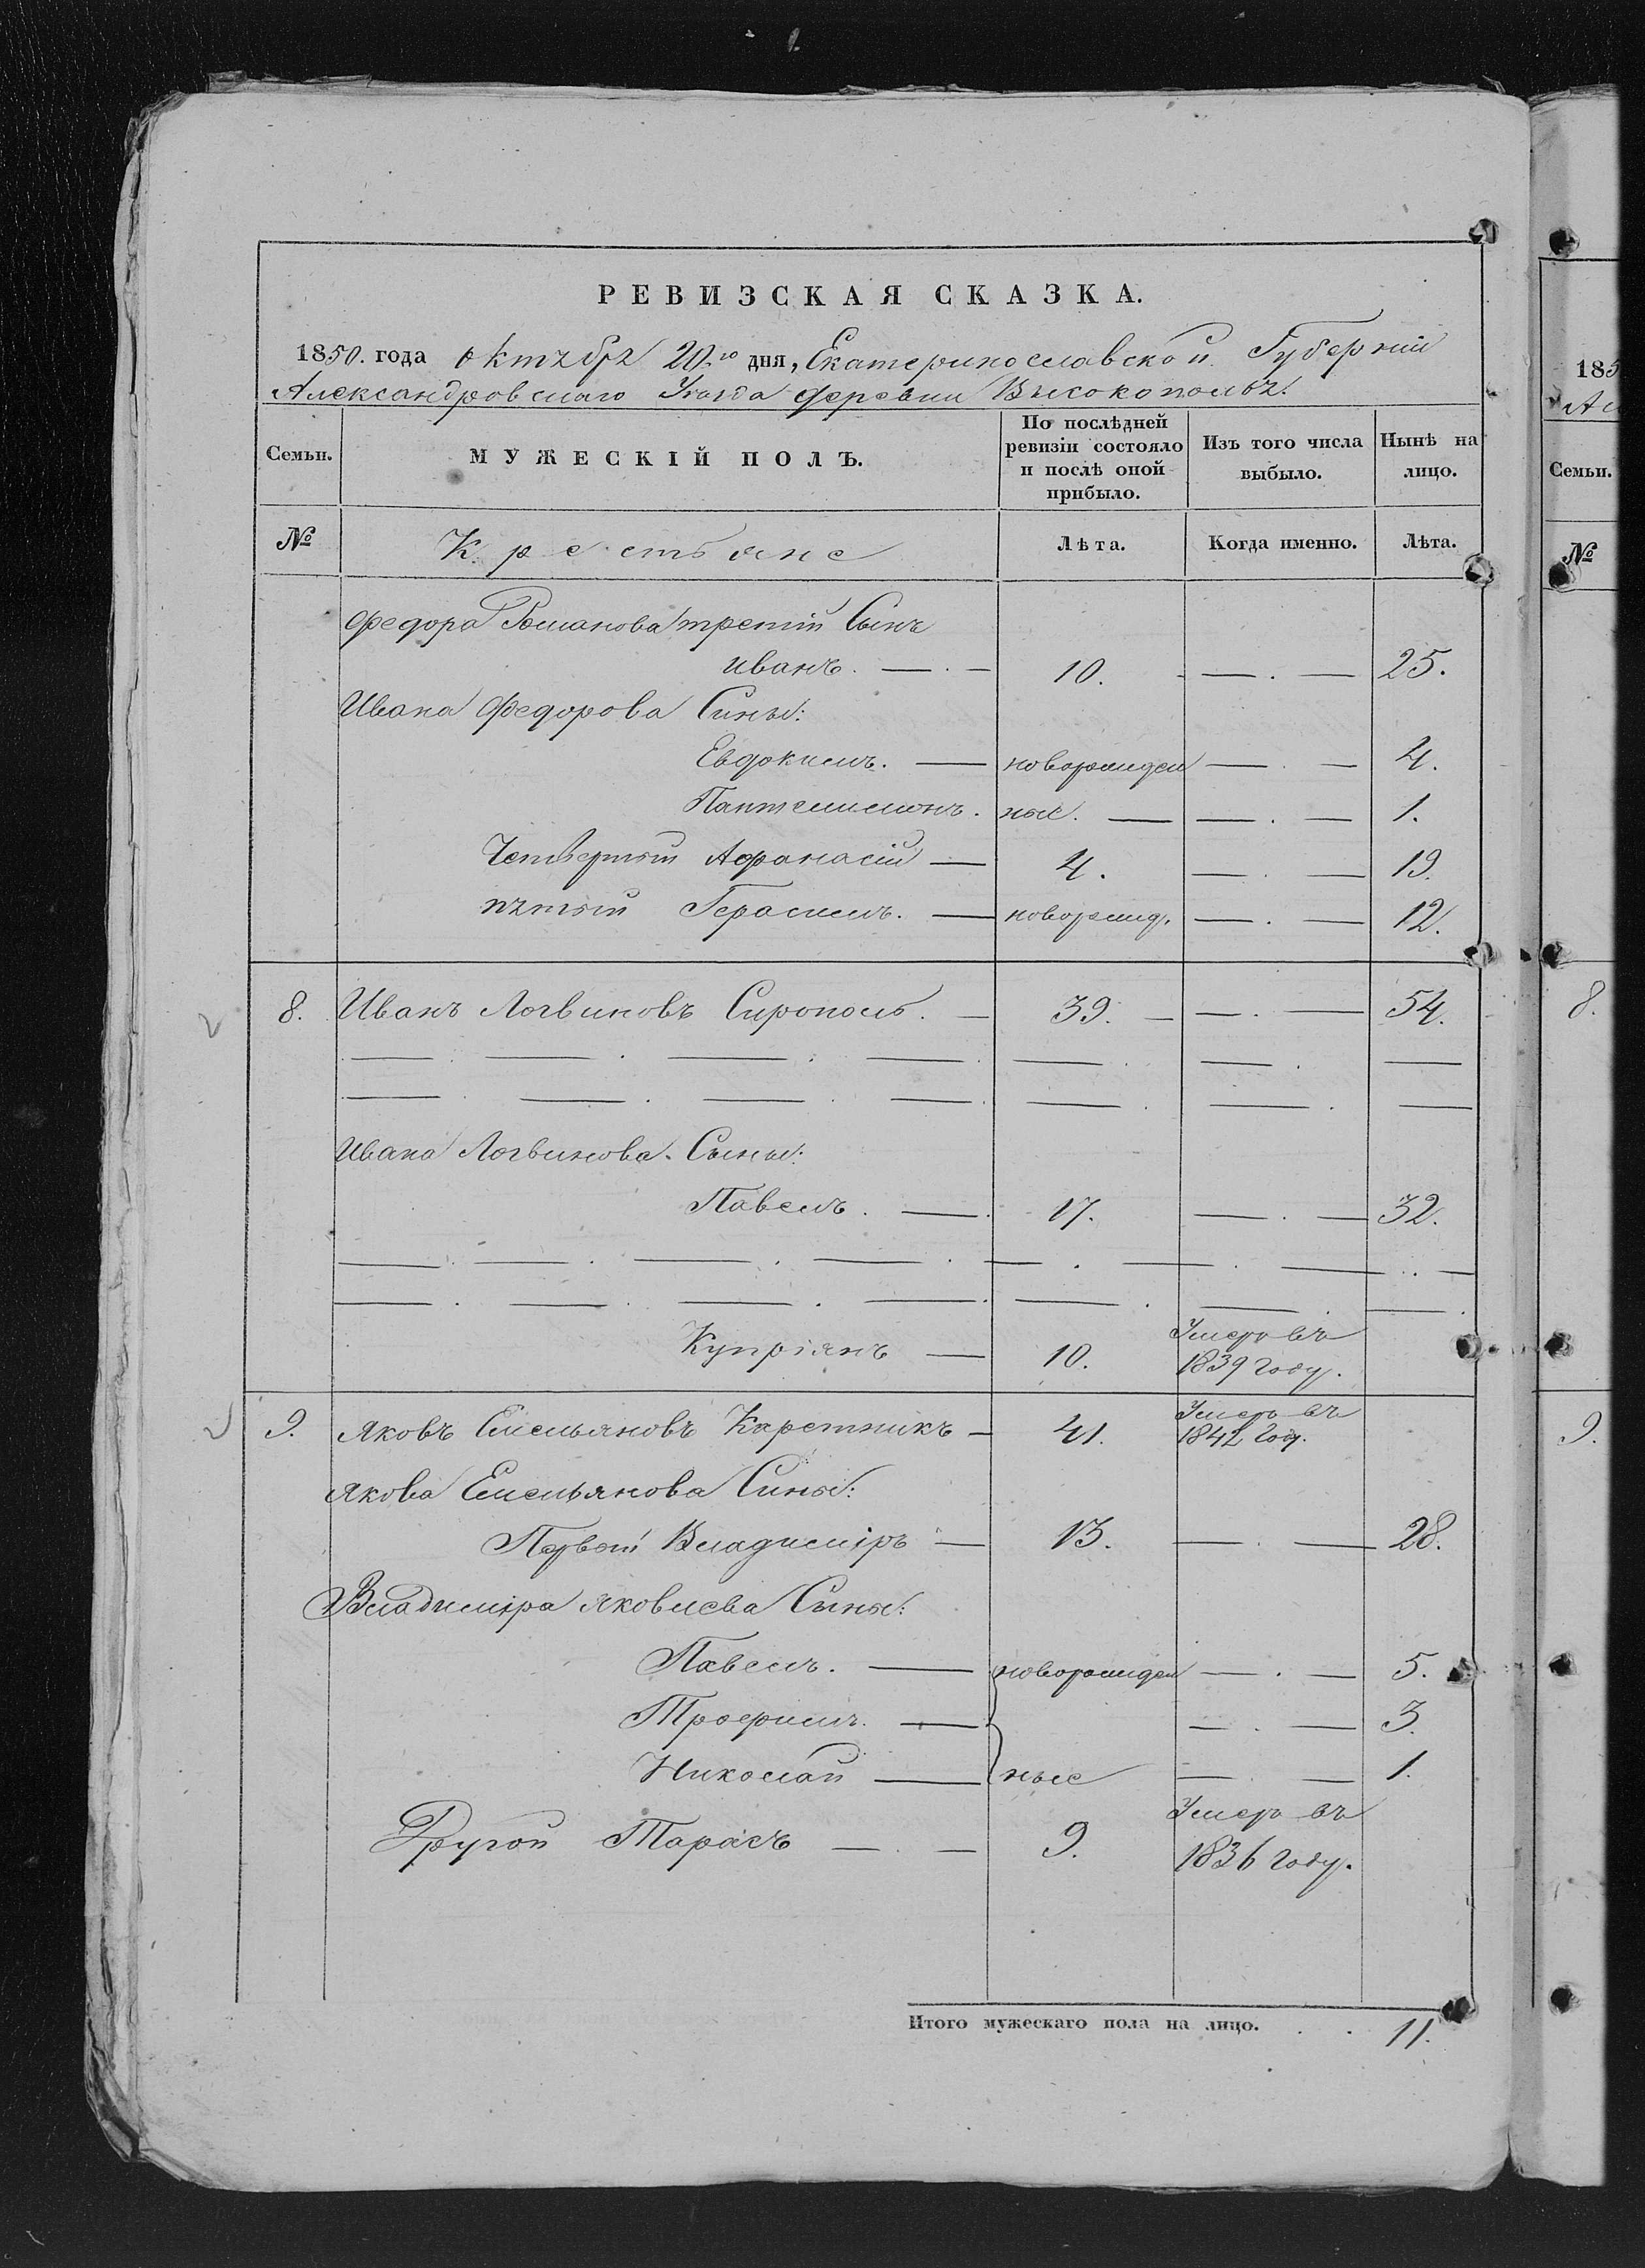 РЕВИЗСКАЯ СКАЗКА.
1850. года октября 20.го дня, Екатеринославской Губернии
Александровскаго Уезда деревни Высокополья.
Семьи. МУЖЕСКІЙ ПОЛЪ. По послѣдней ревизіи состояло и послѣ оной прибыло. Изъ того числа выбыло. Нынѣ на лицо.
№ Крестьяне Лѣта. Когда именно. Лѣта.
Федора Романова третій Сынъ
Иванъ. 10. 25.
Ивана Федорова Сины:
Евдокимъ. новорожден 4.
Пантелимонъ. ные. 1.
Четвертый Афанасій 4. 19.
пятый Герасимъ. новорожд. 12.
8. Иванъ Логвиновъ Сирополь. 39. 54.
Ивана Логвинова. Сыны:
Павелъ. 17. 32.
Купріянъ 10. Умеръ въ
1839 году.
9. Яковъ Емельяновъ Каретникъ 41. Умеръ въ
1842 году.
Якова Емельянова Сины:
Первый Владиміръ 13. 28.
Владиміра Яковлева Сыны:
Павелъ. новорожден 5.
Трофимъ. 3.
Николай ные 1.
Другой Тарасъ 9. Умеръ въ
1836 году.
Итого мужескаго пола на лицо. 11.
185
Ал
Семьи.
№
8.
9.